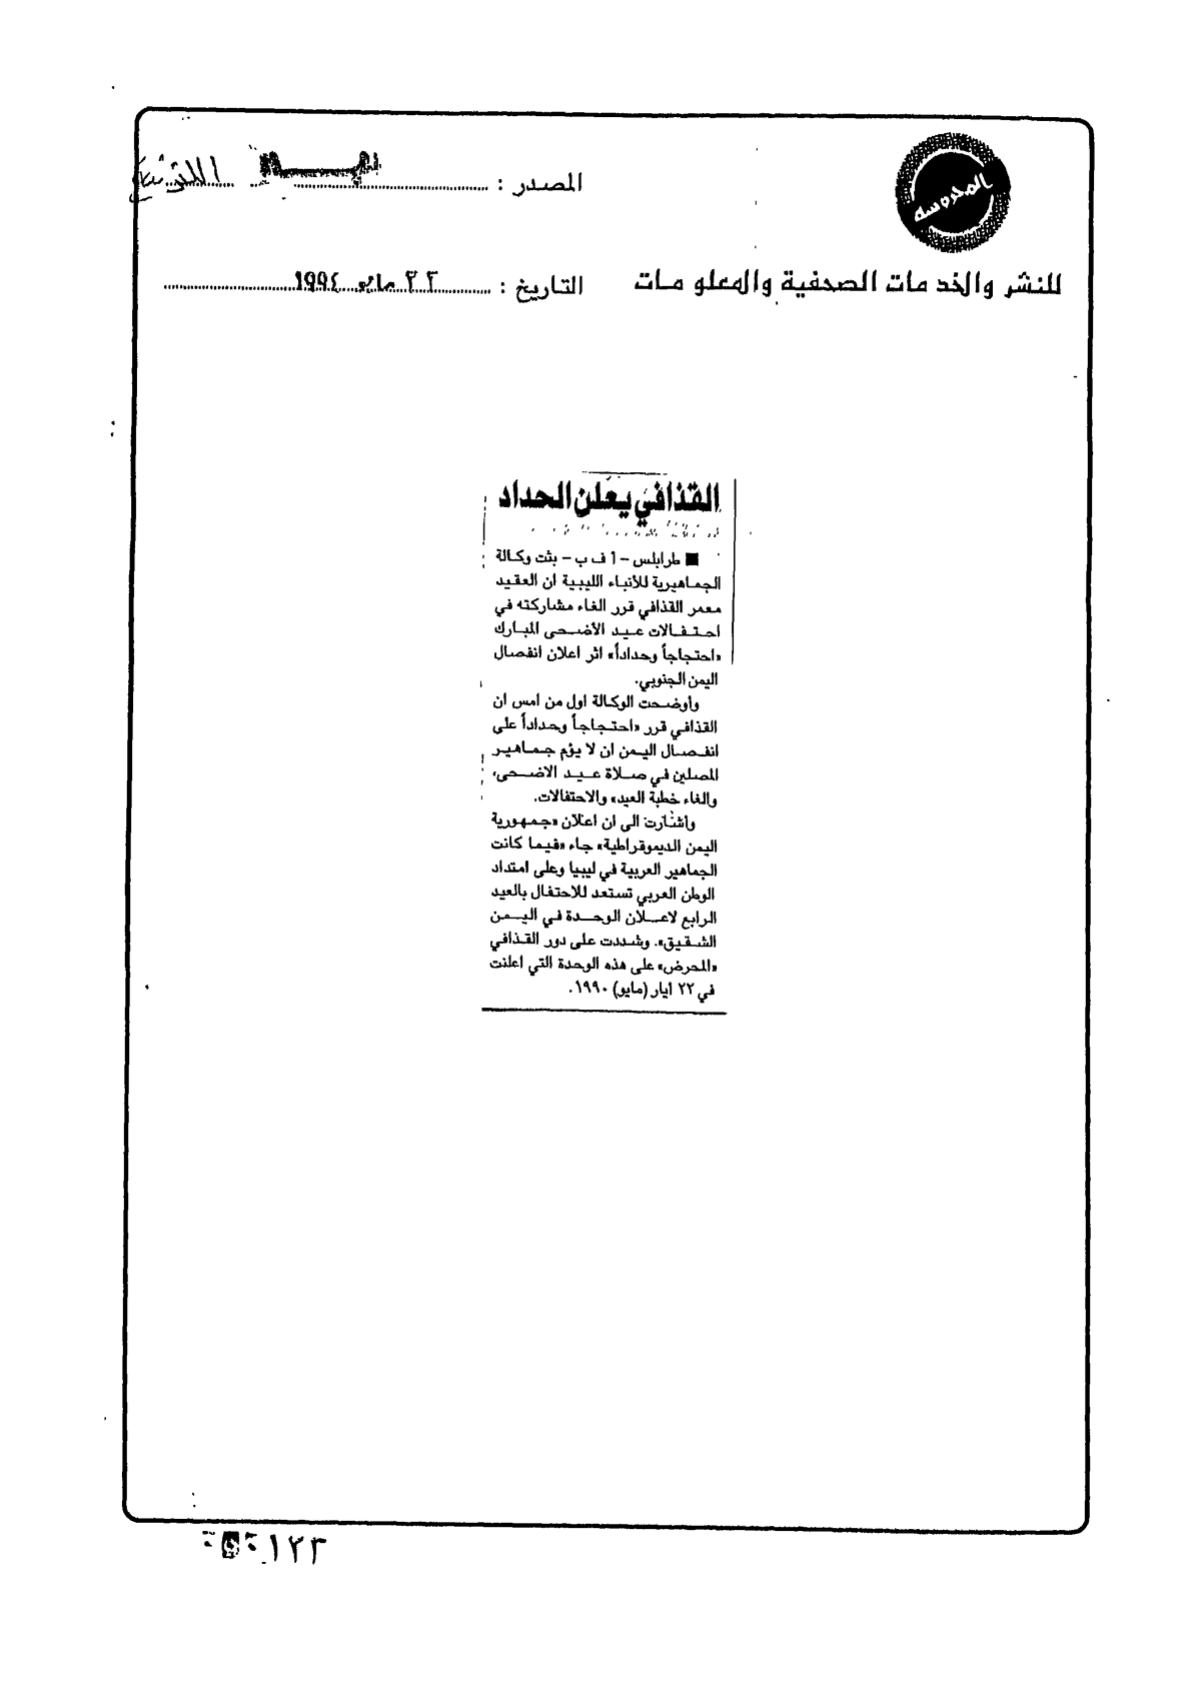 المحروسة
المصدر :
للنشر والخدمات الصحفية والمعلومات
التاريخ : ٢٢ مايو ١٩٩٤
القذافي يعلن الحداد
■ طرابلس - أ ف ب - بثت وكالة
الجماهيرية للأنباء الليبية ان العقيد
معمر القذافي قرر الغاء مشاركته في
احتفالات عيد الأضحى المبارك
«احتجاجاً وحداداً» اثر اعلان انفصال
اليمن الجنوبي.
وأوضحت الوكالة اول من امس ان
القذافي قرر «احتجاجاً وحداداً على
انفصال اليمن ان لا يؤم جماهير
المصلين في صلاة عيد الاضحى،
والغاء خطبة العيد» والاحتفالات.
وأشارت الى ان اعلان «جمهورية
اليمن الديموقراطية» جاء «فيما كانت
الجماهير العربية في ليبيا وعلى امتداد
الوطن العربي تستعد للاحتفال بالعيد
الرابع لاعلان الوحدة في اليمن
الشقيق». وشددت على دور القذافي
«المحرض» على هذه الوحدة التي اعلنت
في ٢٢ ايار (مايو) ١٩٩٠.
١٢٣